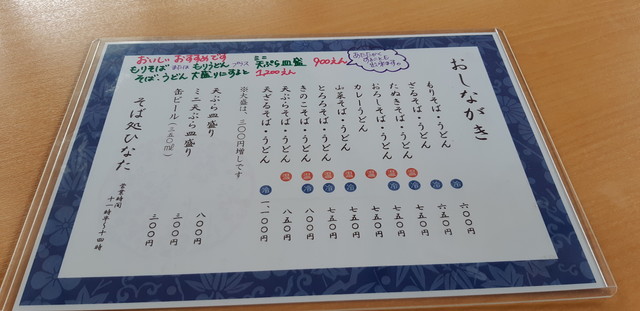 おいしい おすすめです
もりそば または もりうどん プラス ミニ天ぷら皿盛 900えん
そば、うどん 大盛りにすると 1,200えん
おしながき
もりそば・うどん 冷 六〇〇円
ざるそば・うどん 冷 六五〇円
たぬきそば・うどん 温 冷 七五〇円
おろしそば・うどん 温 冷 七五〇円
カレーうどん 温 七五〇円
山菜そば・うどん 温 冷 七五〇円
とろろそば・うどん 温 冷 七五〇円
きのこそば・うどん 温 冷 八〇〇円
天ぷらそば・うどん 温 八五〇円
天ざるそば・うどん 冷 一、一〇〇円
※大盛は、三〇〇円増しです
天ぷら皿盛り 八〇〇円
ミニ天ぷら皿盛り 三〇〇円
缶ビール(三五〇ml) 三〇〇円
そば処ひなた
営業時間
十一時半～十四時